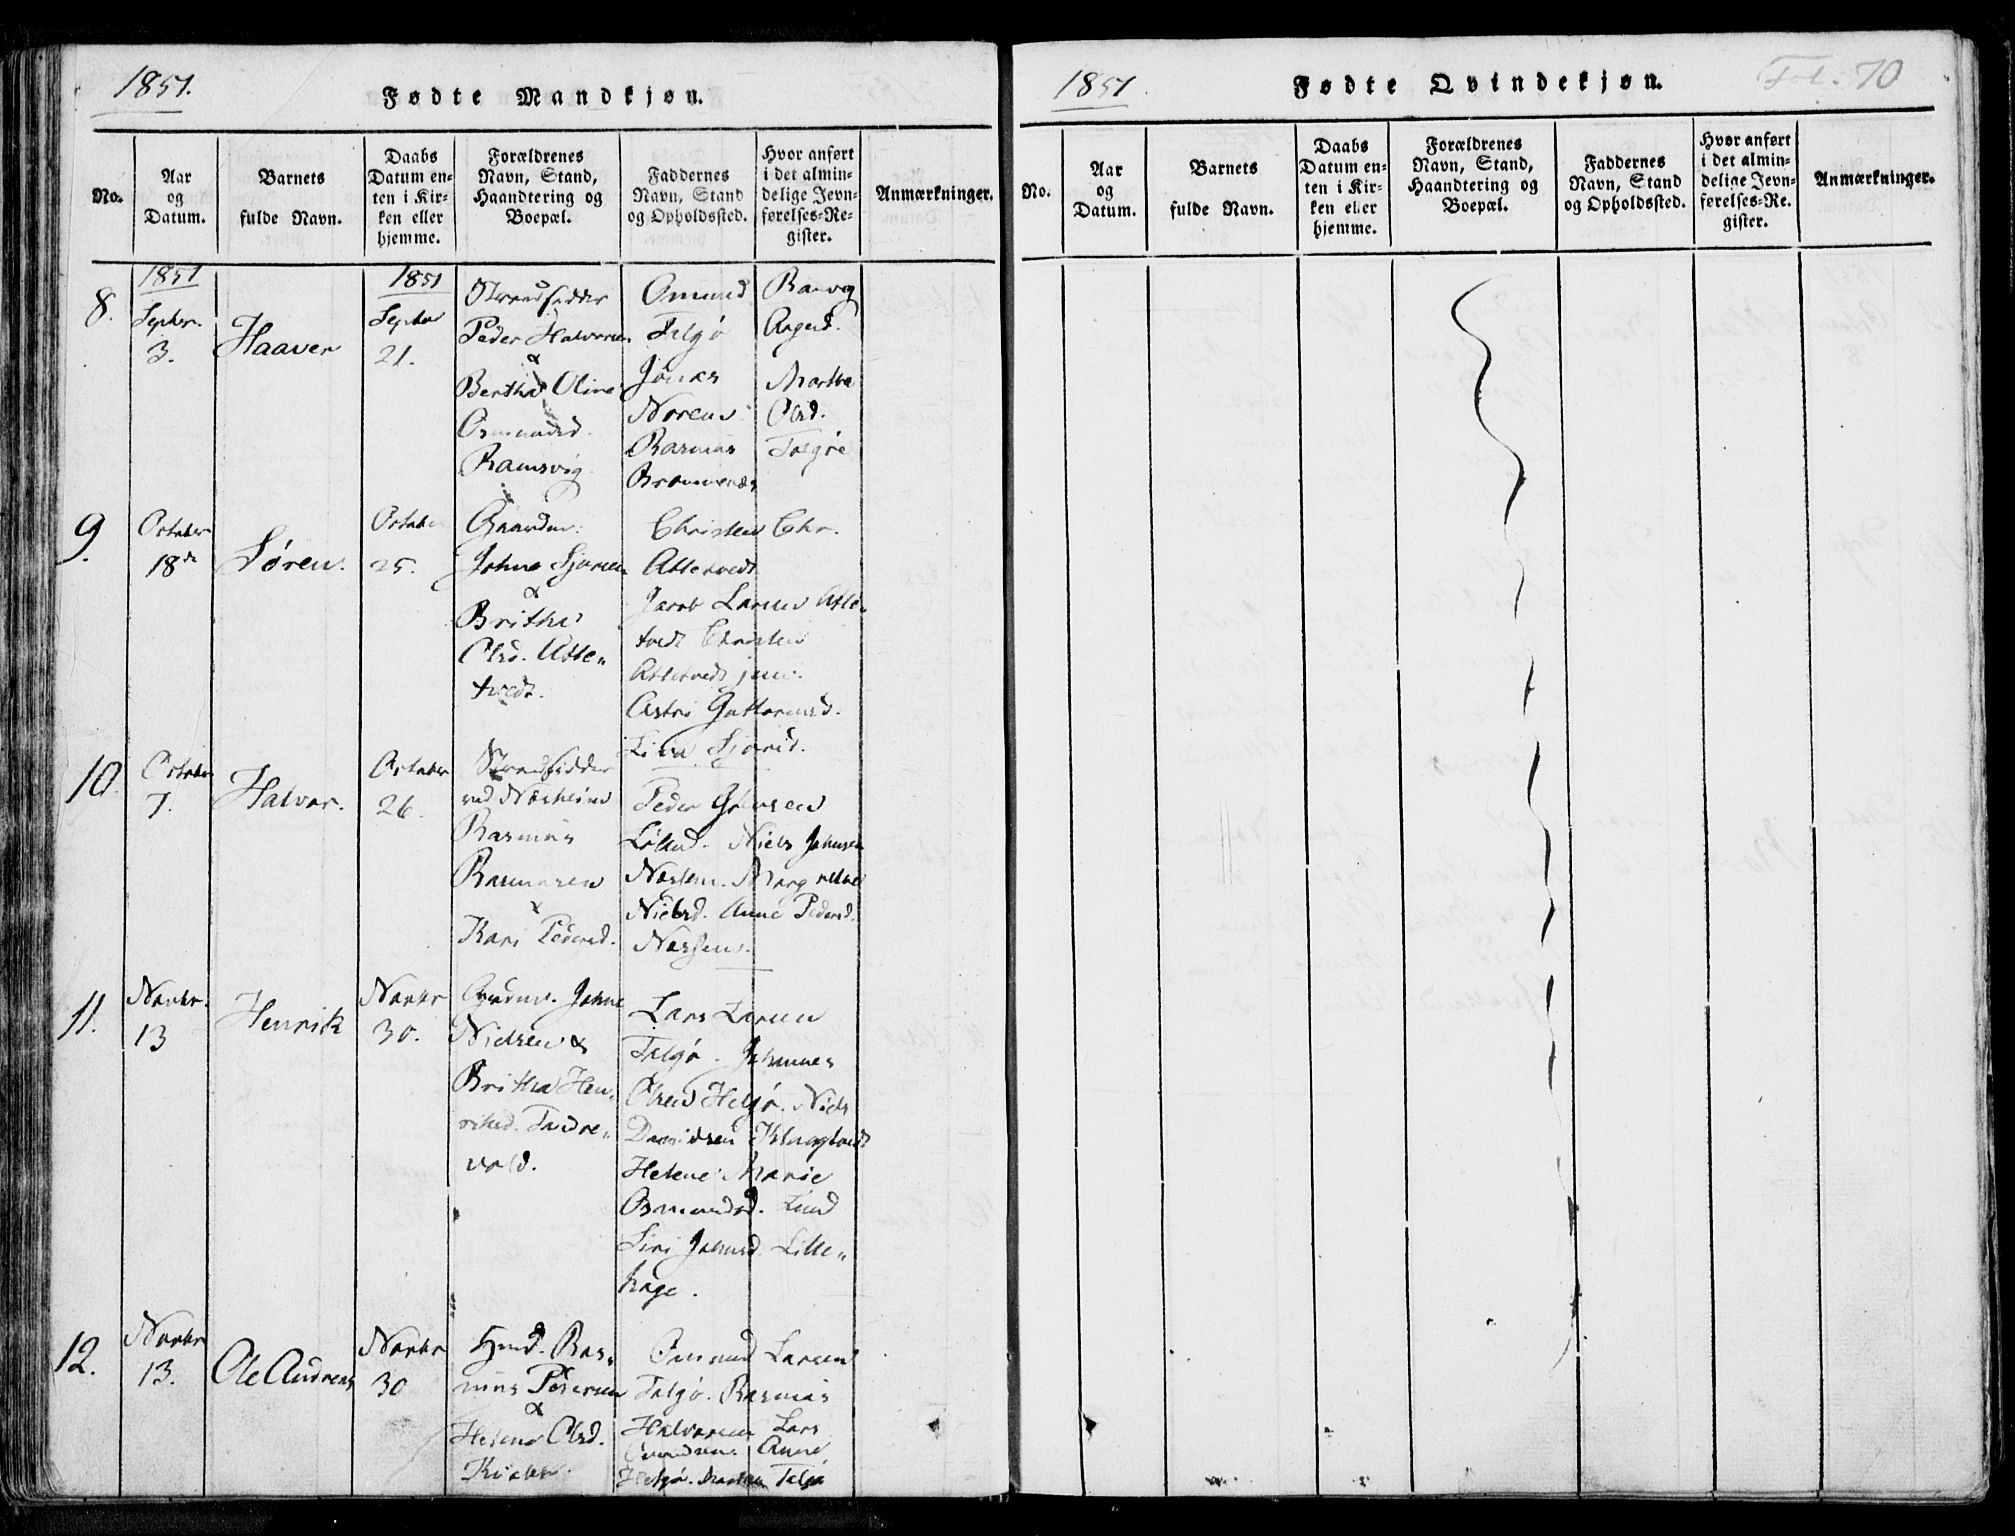 1851.
Fødte Mandkjøn.
No.
Aar
og
Datum.
Barnets
fulde Navn.
Daabs
Datum en-
ten i Kir-
ken eller
hjemme.
Forældrenes
Navn, Stand,
Haandtering og
Boepæl.
Faddernes
Navn, Stand
og Opholdssted.
Hvor anført
i det almin-
delige Jevn-
førelses-Re-
gister.
Anmærkninger.
8.
1851
Septbr.
3.
Haaver
1851
Septbr
21.
Strandsidder
Peder Halvorsen
&
Bertha Oline
Osmundsd.
Ramsvig
Omund
Talgø
Jonas
Norem
Rasmus
Ragnh
Aagesd.
Martha
Olsd.
Talgøe
9.
October
18de
Søren.
October
25.
Gaardm:
Johne Sjursen
&
Britha
Olsd. Atle„
tvedt.
Christen Chr.
Atletvedt
Jacob Larsen Atle„
tvedt Christen
Atletvedt jun:
Astri Guttormsd.
Lina Sjursd.
10.
October
7.
Halvor.
October
26.
Strandsidder
ved Nærheim
Rasmus
Rasmusen
&
Kari Pedersd.
Peder Hansen
Niels Johnsen
Margrethe
Nielsd. Anne Pedersd.
11.
Novbr.
13
Henrik
Novbr
30.
Grdm. Johne
Nielsen &
Britha Hen„
riksd. Landre„
vold.
Lars Larsen
Talgø. Johannes
Olsen Helgø. Niels
Davidsen
Helene Marie
Osmundsd. Lund
Siri Johnsd. Lille„
hage.
12.
Novbr
13.
Ole Andreas
Novbr
30
Hmd. Ras„
mus Pedersen
&
Helene Olsd.
Omund Larsen
Talgø. Rasmus
Halvorsen Lars
Anne
Helgø. Martha Talgø
1851.
Fødte Qvindekjøn.
Fol. 70
No.
Aar
og
Datum.
Barnets
fulde Navn.
Daabs
Datum en-
ten i Kir-
ken eller
hjemme.
Forældrenes
Navn, Stand,
Haandtering og
Boepæl.
Faddernes
Navn, Stand
og Opholdssted.
Hvor anført
i det almin-
delige Jevn-
førelses-Re-
gister.
Anmærkninger.